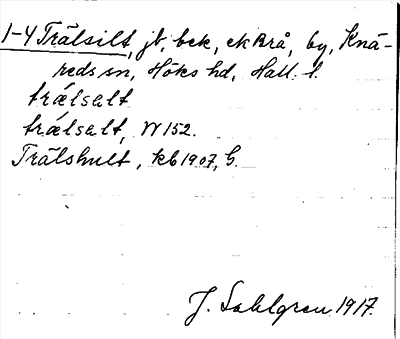 1-4 Trälsilt, jb, bek, ek Brå, by, Knä-
reds sn, Höks hd, Hall. l.
trǽlsalt
trǽlsalt, W 152.
Trälshult, kb 1907, G.
J. Sahlgren 1917.